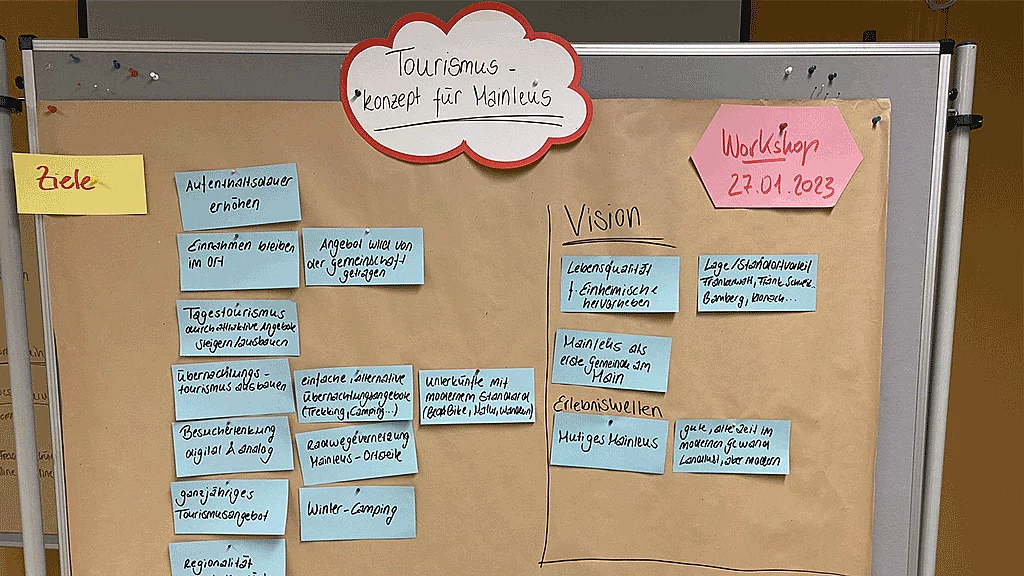 Tourismus-
konzept für Mainleus
Workshop
27.01.2023
Ziele
Aufenthaltsdauer
erhöhen
Einnahmen bleiben
im Ort
Angebot wird von
der Gemeinschaft
getragen
Tagestourismus
durch attraktive Angebote
steigern/ausbauen
Übernachtungs-
tourismus ausbauen
einfache, alternative
Übernachtungsangebote
(Trekking, Camping...)
Unterkünfte mit
modernem Standard
(Bed&Bike, Natur, Wandern)
Besucherlenkung
digital & analog
Radwegevernetzung
Mainleus-Ortsteile
ganzjähriges
Tourismusangebot
Winter-Camping
Regionalität
Vision
Lebensqualität
f. Einheimische
hervorheben
Lage/Standortvorteil
Frankenwald, Fränk. Schweiz
Bamberg, Kronach...
Mainleus als
erste Gemeinde am
Main
Erlebniswelten
Mutiges Mainleus
gute, alte Zeit im
modernen Gewand
Landlust, aber modern